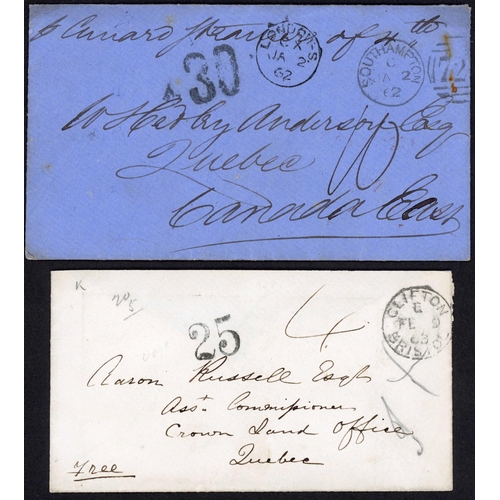 p Cunard Steamer of 4th
30
LONDON-S
CX
JA 2
62
SOUTHAMPTON
C
JA 2
62
72
W Hedley Anderson Esq
Quebec
Canada East
20/5
25
4
CLIFTON
E
FE 9
63
BRISTOL
Aaron Russell Esqre
Asst Commissioner
Crown Land Office
Quebec
Free